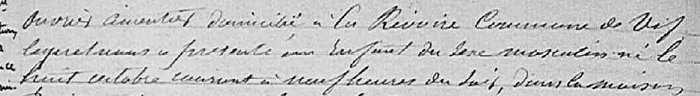 ouvrier cimentier domicilié à La Rivoire Commune de Vif
lequel nous a présenté un Enfant du sexe masculin né le
huit octobre courant à neuf heures du soir, dans la maison